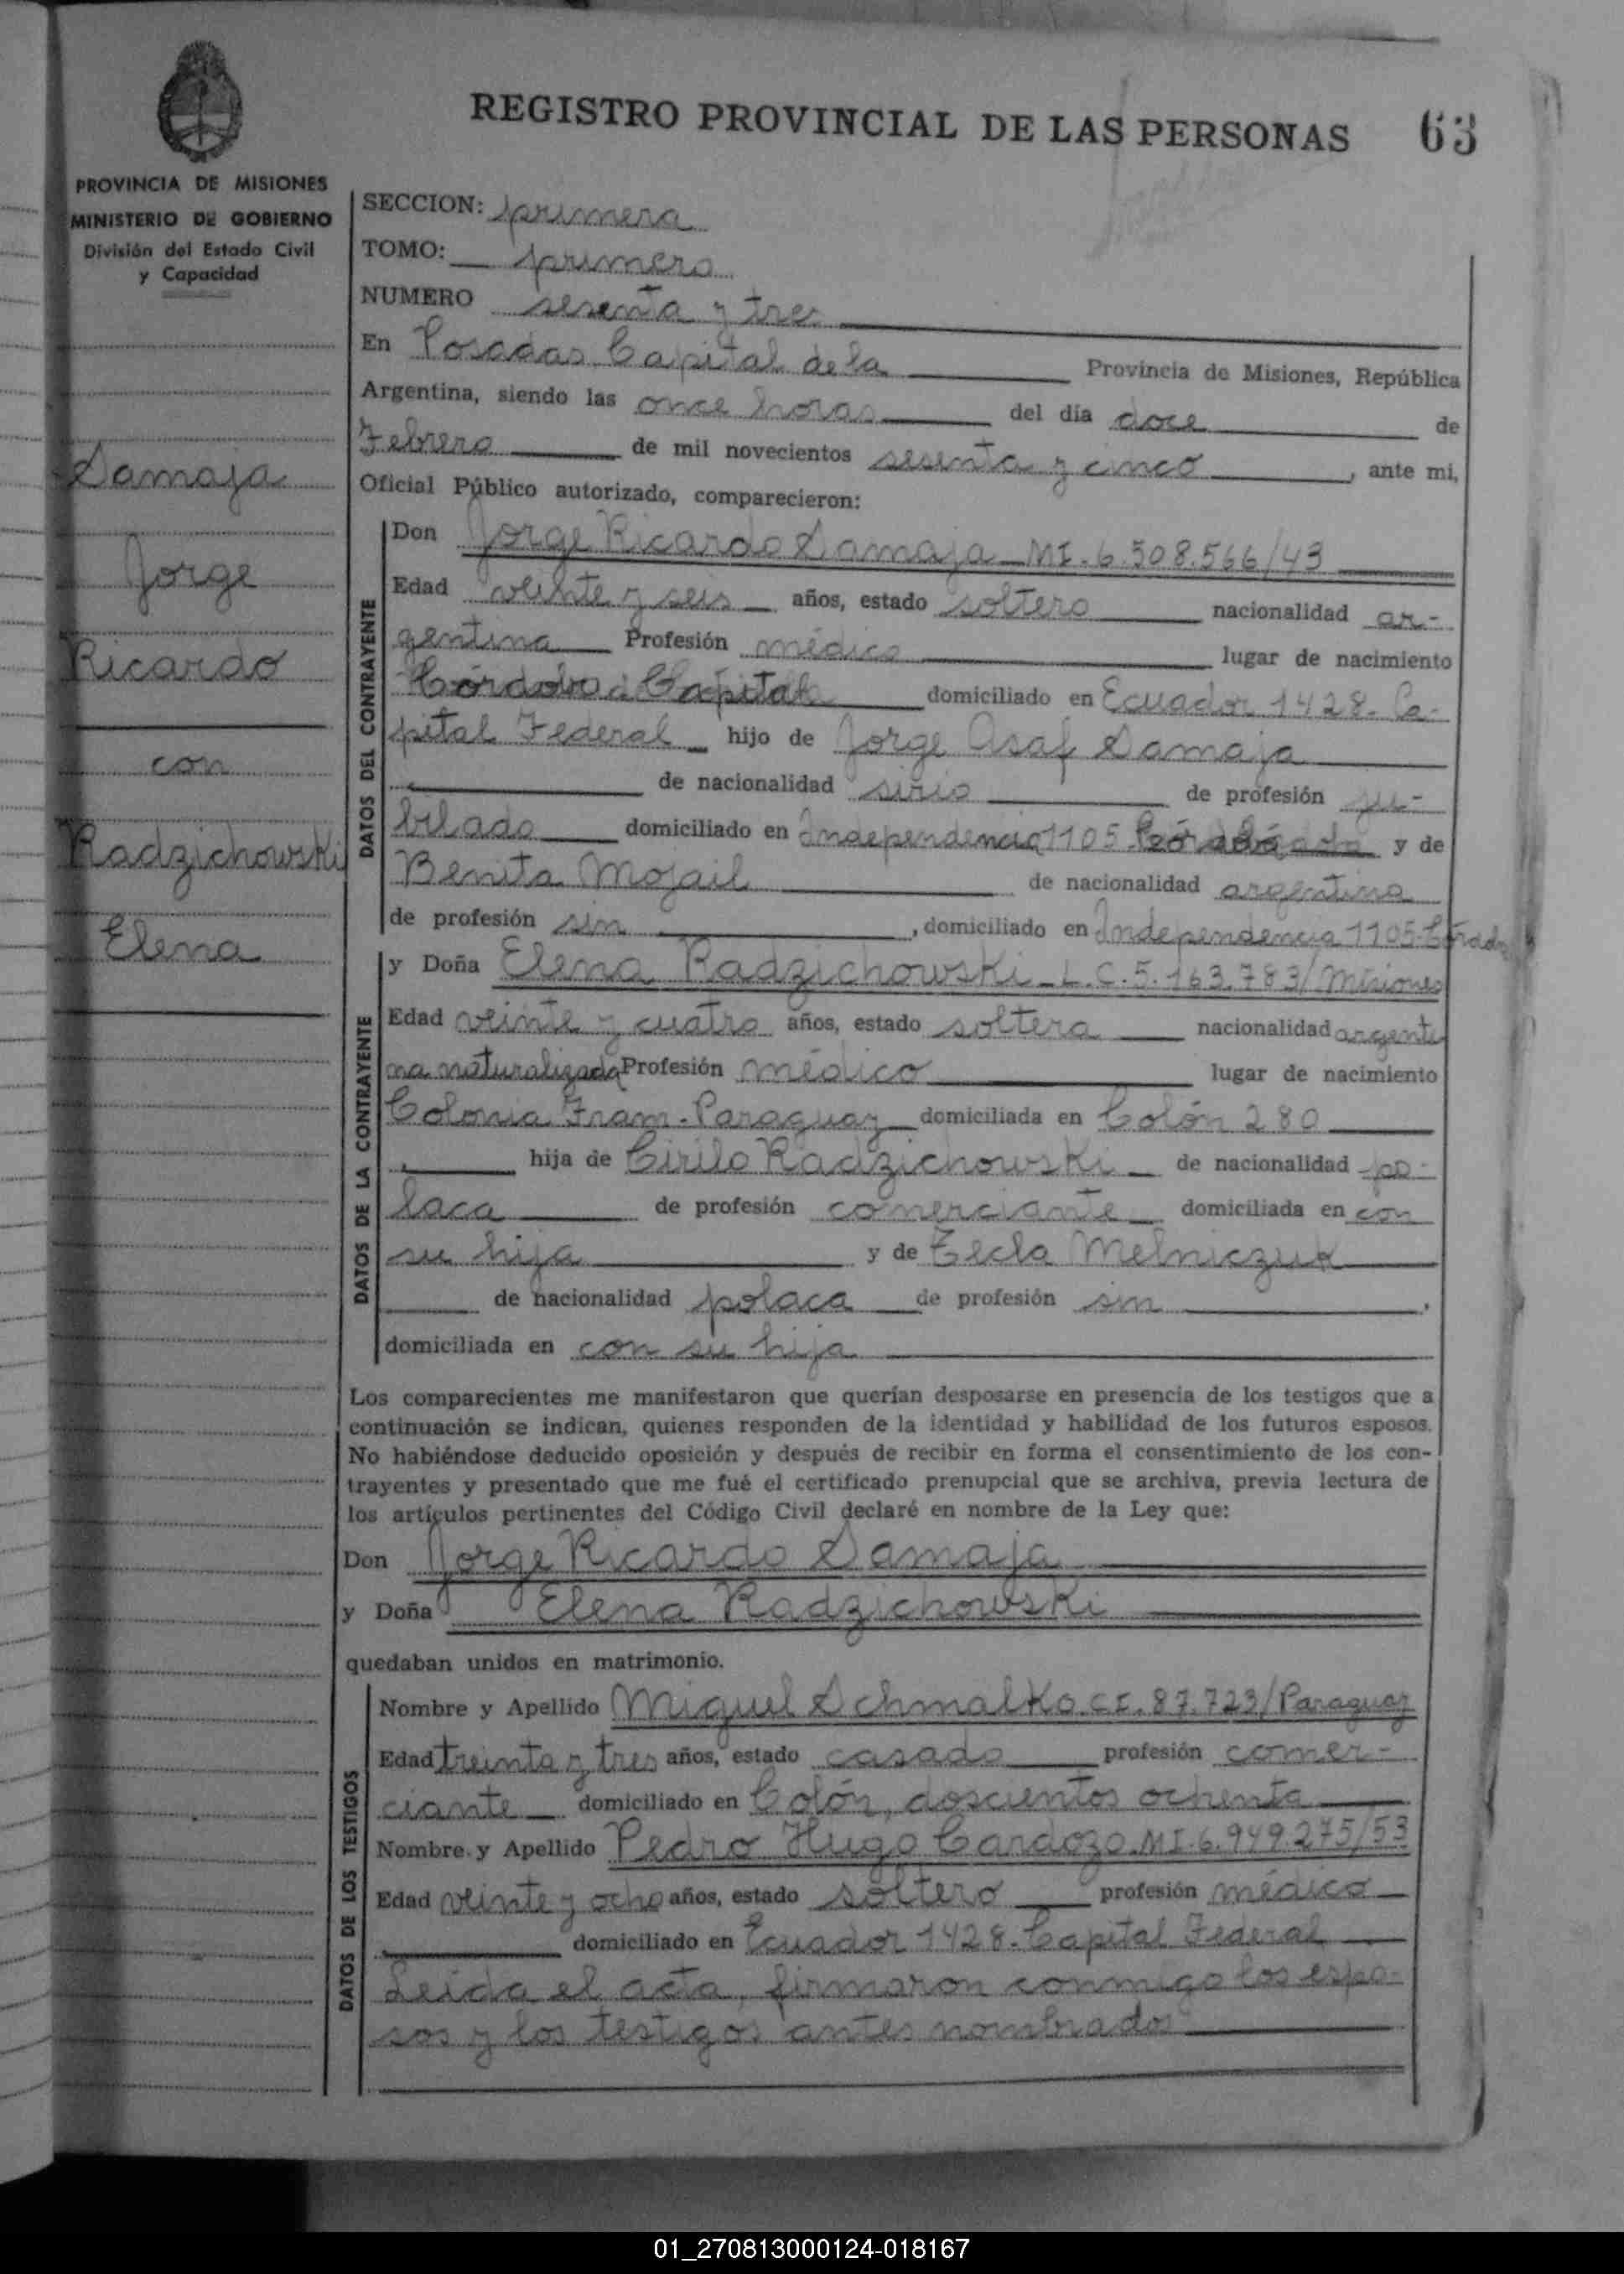 REGISTRO PROVINCIAL DE LAS PERSONAS 63
PROVINCIA DE MISIONES
MINISTERIO DE GOBIERNO
División del Estado Civil
y Capacidad
Samaja
Jorge
Ricardo
con
Radzichowski
Elena
SECCION: primera
TOMO: primero
NUMERO sesenta y tres
En Posadas Capital de la Provincia de Misiones, República
Argentina, siendo las once horas del día doce de
Febrero de mil novecientos sesenta y cinco, ante mi,
Oficial Público autorizado, comparecieron:
DATOS DEL CONTRAYENTE
Don Jorge Ricardo Samaja - MI. 6.508.566/43
Edad veinte y seis años, estado soltero nacionalidad ar-
gentina Profesión médico lugar de nacimiento
Córdoba Capital domiciliado en Ecuador 1428 - Ca-
pital Federal hijo de Jorge Asaf Samaja
de nacionalidad sirio de profesión ju-
bilado domiciliado en Independencia 1105 Córdoba y de
Benita Mojail de nacionalidad argentina
de profesión sin, domiciliado en Independencia 1105-Córdoba
DATOS DE LA CONTRAYENTE
y Doña Elena Radzichowski - L.C. 5.163.783/Misiones
Edad veinte y cuatro años, estado soltera nacionalidad argenti
na naturalizada Profesión médico lugar de nacimiento
Colonia Fram - Paraguay domiciliada en Colón 280
hija de Cirilo Radzichowski de nacionalidad po-
laca de profesión comerciante domiciliada en con
su hija y de Tecla Melniczuk
de nacionalidad polaca de profesión sin,
domiciliada en con su hija
Los comparecientes me manifestaron que querían desposarse en presencia de los testigos que a
continuación se indican, quienes responden de la identidad y habilidad de los futuros esposos.
No habiéndose deducido oposición y después de recibir en forma el consentimiento de los con-
trayentes y presentado que me fué el certificado prenupcial que se archiva, previa lectura de
los artículos pertinentes del Código Civil declaré en nombre de la Ley que:
Don Jorge Ricardo Samaja
y Doña Elena Radzichowski
quedaban unidos en matrimonio.
DATOS DE LOS TESTIGOS
Nombre y Apellido Miguel Schmalko. CI. 87.723/Paraguay
Edad treinta y tres años, estado casado profesión comer-
ciante domiciliado en Colón, doscientos ochenta
Nombre y Apellido Pedro Hugo Cardozo. MI. 6.949.275/53
Edad veinte y ocho años, estado soltero profesión médico
domiciliado en Ecuador 1428 - Capital Federal
Leida el acta, firmaron conmigo los espo-
sos y los testigos antes nombrados
01_270813000124-018167